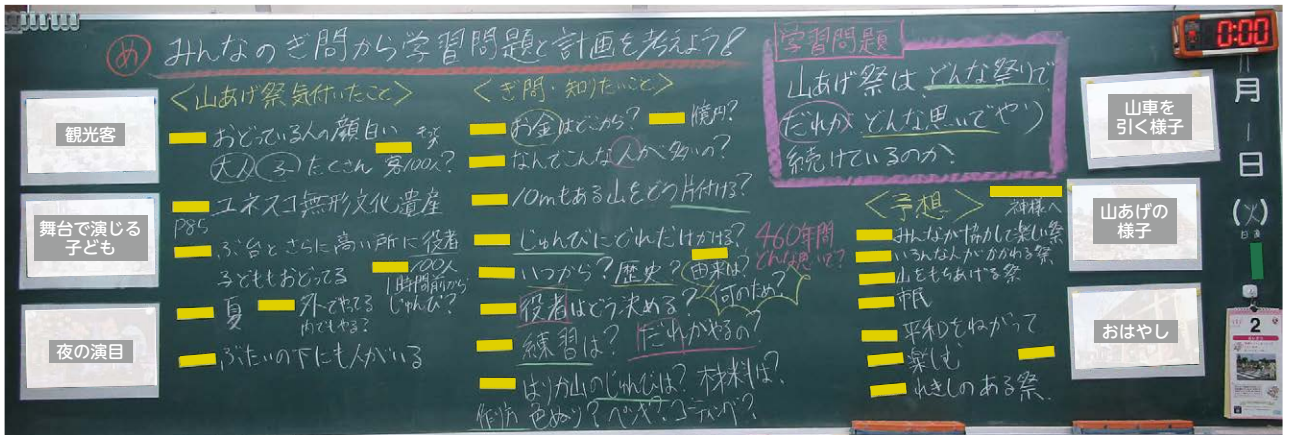 め みんなのぎ問から学習問題と計画を考えよう!
観光客
舞台で演じる
子ども
夜の演目
<山あげ祭気付いたこと>
おどっている人の顔白い
大人 子 たくさん 客100人?
ユネスコ無形文化遺産
P85
ぶ台とさらに高い所に役者
子どももおどってる
100人
1時間前から
じゅんび?
夏 外でやってる
内でもやる?
ぶたいの下にも人がいる
<ぎ問・知りたいこと>
お金はどこから? 億円?
なんでこんな人が多いの?
10mもある山をどう片付ける?
じゅんびにどれだけかける?
460年間
どんな思いで?
いつから?歴史?由来は?
何のため?
役者はどう決める?
練習は? だれがやるの?
はりか山のじゅんびは? 材料は?
作り方 色ぬり?ペンキ?コーティング?
学習問題
山あげ祭は、どんな祭りで
だれが どんな思いでやり
続けているのか?
<予想>
神様へ
みんなが協力して楽しい祭
いろんな人がかかわる祭
山をもちあげる祭
市民
平和をねがって
楽しむ
れきしのある祭
山車を
引く様子
山あげの
様子
おはやし
0:00
月
日
(火)
2